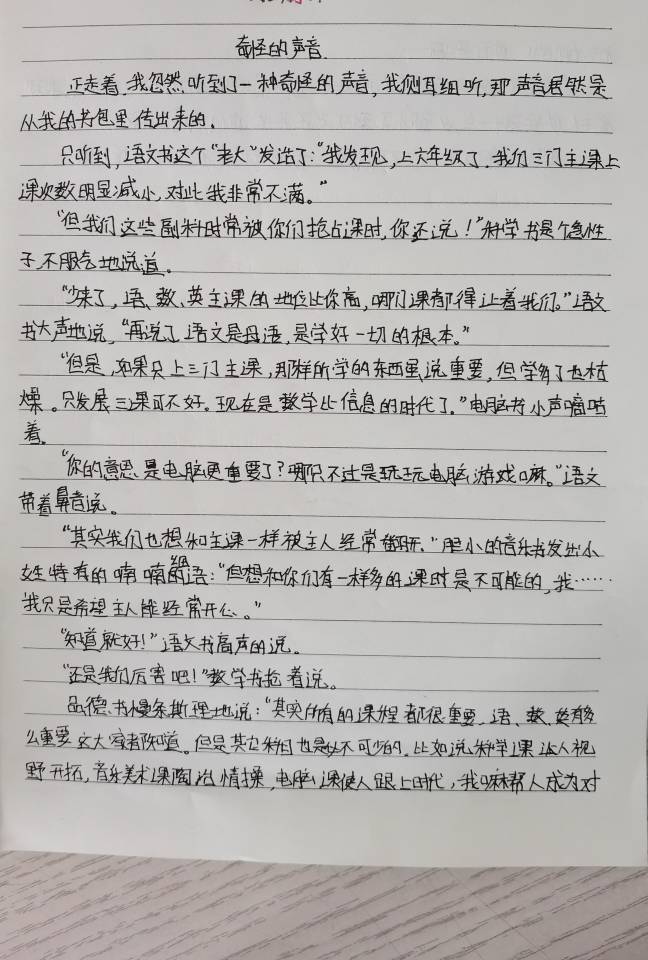 奇怪的声音
正走着,我忽然听到了一种奇怪的声音,我侧耳细听,那声音居然是
从我的书包里传出来的。
只听到,语文书这个“老大”发话了:“我发现,上六年级了,我们三门主课上
课次数明显减小,对此我非常不满。”
“但我们这些副科时常被你们抢占课时,你还说!”科学书是个急性
子,不服气地说道。
“少来了,语、数、英主课的地位比你高,哪门课都得让着我们。”语文
书大声地说,“再说了语文是母语,是学好一切的根本。”
“但是,如果只上三门主课,那样所学的东西虽说重要,但学多了也枯
燥。只发展三课可不好。现在是数学比信息的时代了。”电脑书小声嘀咕
着。
“你的意思是电脑更重要了?哪只不过是玩玩电脑游戏嘛。”语文
带着鼻音说。
“其实我们也想和主课一样被主人经常翻开。”胆小的音乐书发出小
女生特有的喃喃细语:“但想和你们有一样多的课时是不可能的,我……
我只是希望主人能经常开心。”
“知道就好!”语文书高声的说。
“还是我们厉害吧!”数学书抢着说。
品德书慢条斯理地说:“其实所有的课程都很重要,语、数、英有多
么重要这大家都知道。但是其它科目也是必不可少的,比如说科学课让人视
野开拓,音乐美术课陶冶情操,电脑课使人跟上时代,我嘛帮人成为对